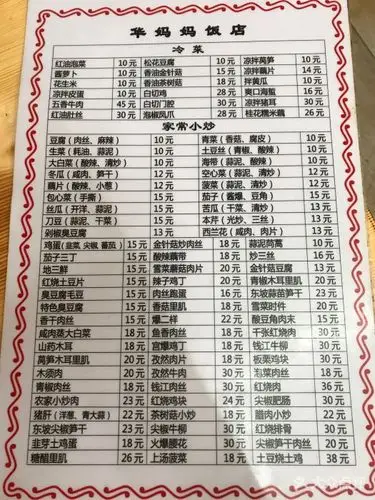 华妈妈饭店
冷菜
红油泡菜 10元 松花豆腐 10元 凉拌莴笋 10元
酱萝卜 10元 香油金针菇 15元 凉拌藕片 14元
花生米 10元 香油茶树菇 18元 拌黄瓜 10元
凉拌皮蛋 10元 白切鸡 28元 爽口海蜇 16元
五香牛肉 45元 白切门腔 30元 凉拌猪耳 30元
红油肚丝 30元 泡椒凤爪 28元 桂花糯米藕 26元
家常小炒
豆腐（肉丝、麻辣） 10元 青菜（香菇、腐皮） 10元
生菜（耗油、蒜泥） 10元 土豆丝（青椒、酸辣） 10元
大白菜（酸辣、清炒） 10元 海带（蒜泥、酸辣） 10元
冬瓜（咸肉、笋干） 12元 空心菜（蒜泥、清炒） 12元
藕片（酸辣、小葱） 12元 菠菜（蒜泥、清炒） 12元
包心菜（手撕） 15元 茄子（酱爆、红烧） 12元
丝瓜（开洋、蒜泥） 15元 苦瓜（干菜、清炒） 13元
刀豆（蒜泥、干菜） 15元 本芹（光炒、三丝） 13元
剁椒臭豆腐 13元 西兰花（咸肉、肉片） 13元
鸡蛋（韭菜 尖椒 番茄） 15元 金针菇炒肉丝 18元 蒜泥茼蒿 10元
茄子三丁 15元 酸辣藕带 18元 炒三丝 16元
地三鲜 15元 雪菜蘑菇肉片 20元 金针菇豆腐 15元
红烧土豆片 15元 辣子鸡丁 20元 青椒木耳里肌 20元
臭豆腐毛豆 15元 肉丝跑蛋 20元 东坡蒜苗笋干 20元
特色臭豆腐 15元 香菇里肌 20元 雪菜时件 20元
香干肉丝 15元 爆二样 22元 酸豆角肉末 15元
咸肉蒸大白菜 18元 鱼香肉丝 18元 千张红烧肉 30元
山药木耳 18元 宫爆鸡丁 20元 钱江牛柳 30元
莴笋木耳里肌 20元 孜然肉片 20元 板栗鸡块 30元
木须肉 20元 孜然牛肉 30元 泡菜肉丝 18元
青椒肉丝 18元 钱江肉丝 20元 红烧肉 36元
农家小炒肉 24元 红烧鸡块 24元 尖椒肥肠 30元
猪肝（洋葱、青大蒜） 22元 茶树菇小炒 20元 腊肉小炒 30元
东坡尖椒笋干 22元 尖椒牛柳 30元 红烧排骨 30元
韭芽土鸡蛋 18元 火爆腰花 30元 尖椒笋干肉丝 30元
糖醋里肌 26元 上汤菠菜 18元 土豆烧土鸡 38元